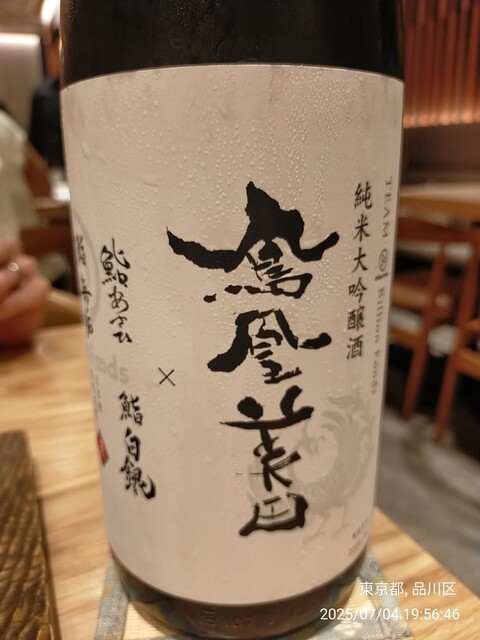 TEAM Ⓡ Rillion Foods
純米大吟醸酒
鳳凰美田
×
鮨あさひ
鮨白銀
東京都, 品川区
2025/07/04 19:56:46